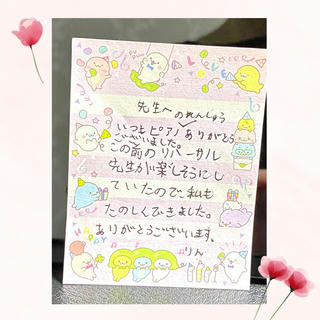 先生へ
いつもピアノのれんしゅうありがとう
ございました。
この前のリハーサル
先生が楽しそうにし
ていたので、私も
たのしくできました。
ありがとうございます。
りん
LOVE
HAPPY